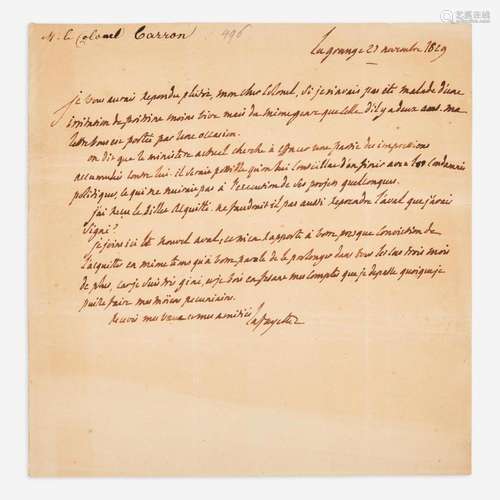 M. le Colonel Carron 496
Lagrange 27 novembre 1829
je vous aurais repondu plutot, mon cher Colonel, si je n'avais pas été malade d'une
irritation de poitrine moins vive mais du même genre que celle d'il y a deux ans. ma
lettre vous est portée par une occasion.
on dit que le ministère actuel cherche à effacer une partie des impressions
accumulées contre lui. il serait possible qu'on lui conseillat d'en finir avec les condamnés
politiques, ce qui ne nuirait pas à l'execution de ses projets quelconques.
j'ai reçu le billet acquitté. ne faudrait il pas aussi reprendre l'aval que j'avais
signé?
je joins ici le nouvel aval; je m'en rapporte à votre presque conviction de
l'acquitter en même tems qu'à votre parole de le prolonger dans tous les cas trois mois
de plus, car je suis très gêné, et je vois en faisant mes comptes que je depasse quoique je
puisse faire mes moyens pecuniaires.
recevez mes vœux et mes amitiés
Lafayette